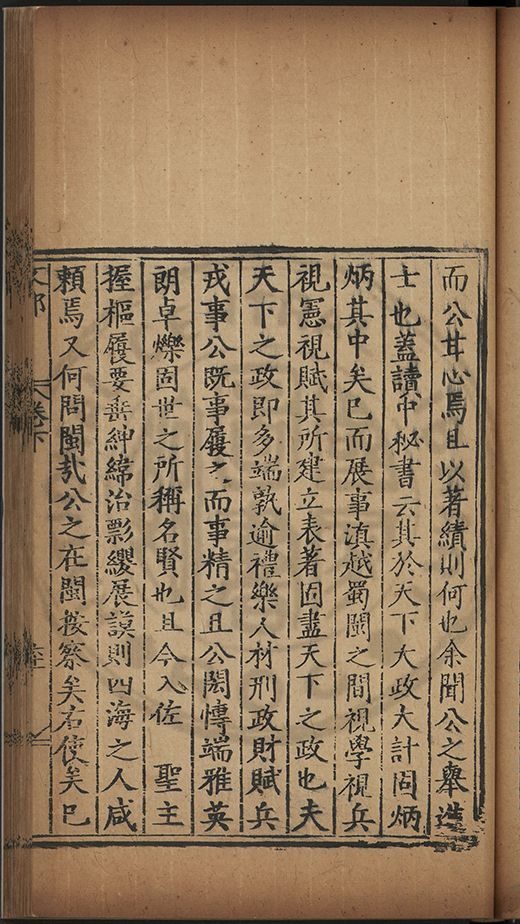 而公甘心焉且以著績則何也余聞公之舉進
士也蓋讀中秘書云其於天下大政大計固炳
炳其中矣已而展事滇越蜀閩之間視學視兵
視憲視賦其所建立表著固盡天下之政也夫
天下之政即多端孰逾禮樂人材刑政財賦兵
戎事公既事履之而事精之且公閎慱端雅英
朗卓爍固世之所稱名賢也且今入佐 聖主
握樞履要垂紳綿治影纓展謨則四海之人咸
賴焉又何問閩哉公之在閩按察矣右使矣已
卷下